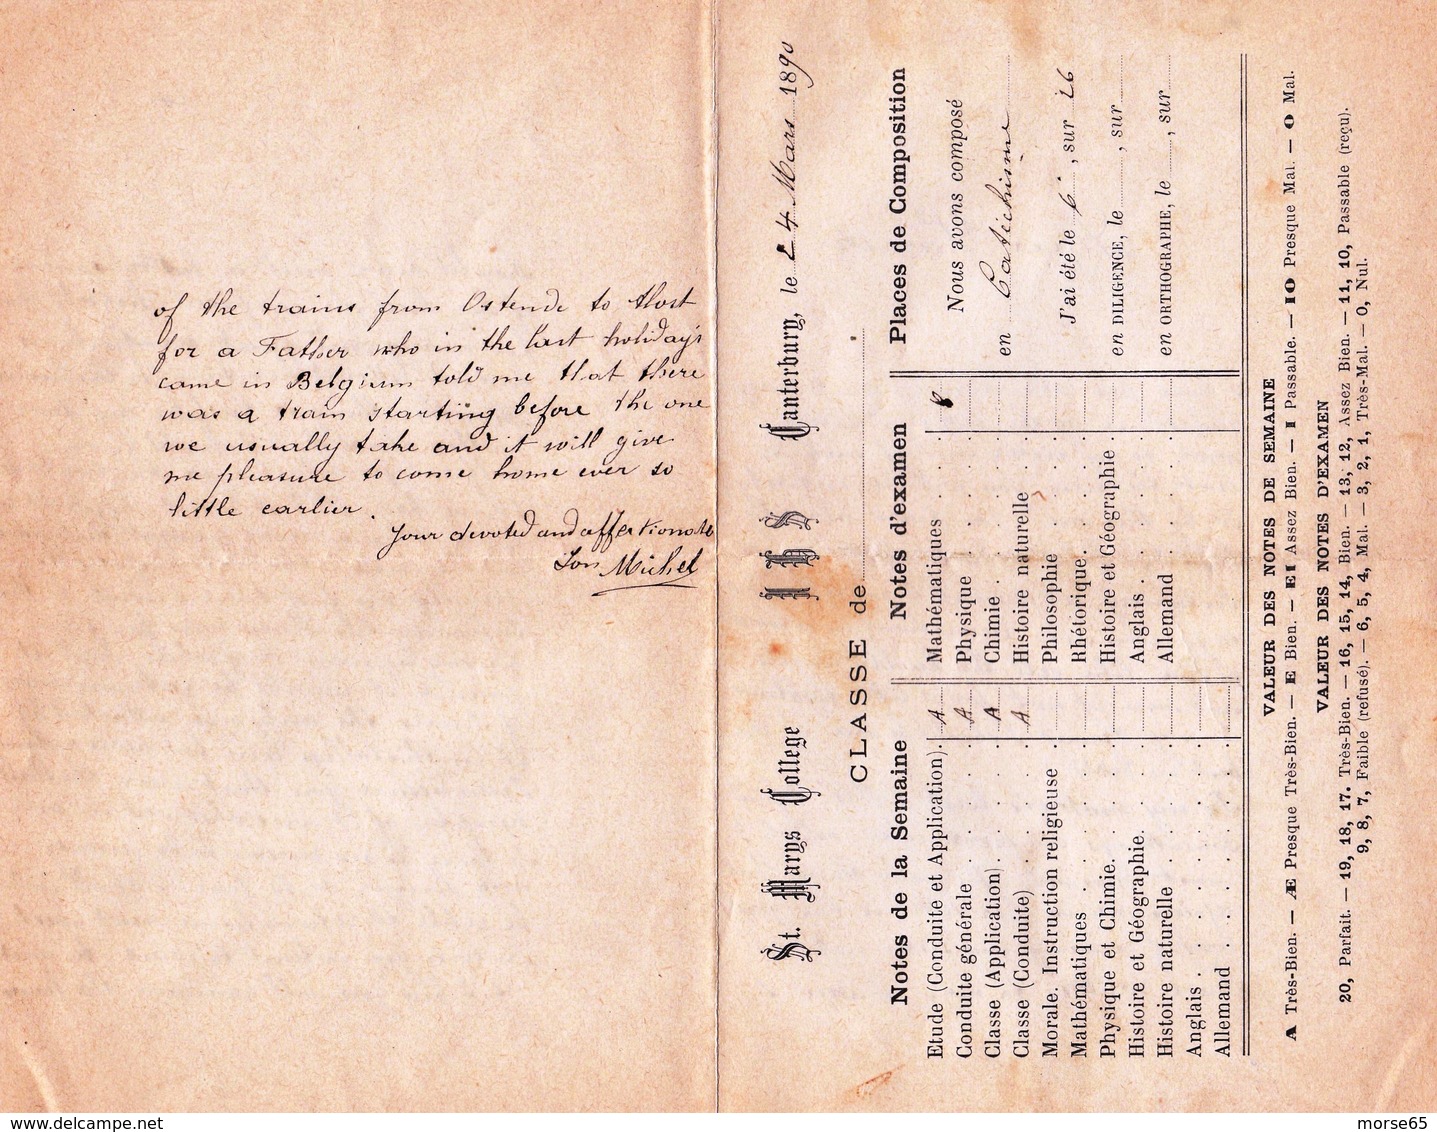 of the trains from Ostende to thost
for a Father who in the last holiday's
came in Belgium told me that there
was a train starting before the one
we usually take and it will give
me pleasure to come home ever so
little earlier.
Your devoted and affectionate
Son Michel
St. Marys College
Canterbury, le 24 Mars 1890
CLASSE de
Notes de la Semaine
Etude (Conduite et Application). A
Conduite générale A
Classe (Application) A
Classe (Conduite) A
Morale. Instruction religieuse
Mathématiques
Physique et Chimie.
Histoire et Géographie.
Histoire naturelle
Anglais
Allemand
Notes d'examen
Mathématiques
Physique
Chimie
Histoire naturelle
Philosophie
Rhétorique
Histoire et Géographie
Anglais
Allemand
Places de Composition
Nous avons composé
en Catéchisme
J'ai été le 6e, sur 26
en DILIGENCE, le , sur
en ORTHOGRAPHE, le , sur
VALEUR DES NOTES DE SEMAINE
A Très-Bien. — Æ Presque Très-Bien. — E Bien. — EI Assez Bien. — I Passable. — IO Presque Mal. — O Mal.
VALEUR DES NOTES D'EXAMEN
20, Parfait. — 19, 18, 17. Très-Bien. — 16, 15, 14, Bien. — 13, 12, Assez Bien. — 11, 10, Passable (reçu).
9, 8, 7, Faible (refusé). — 6, 5, 4, Mal. — 3, 2, 1, Très-Mal. — 0, Nul.
www.delcampe.net
morse65